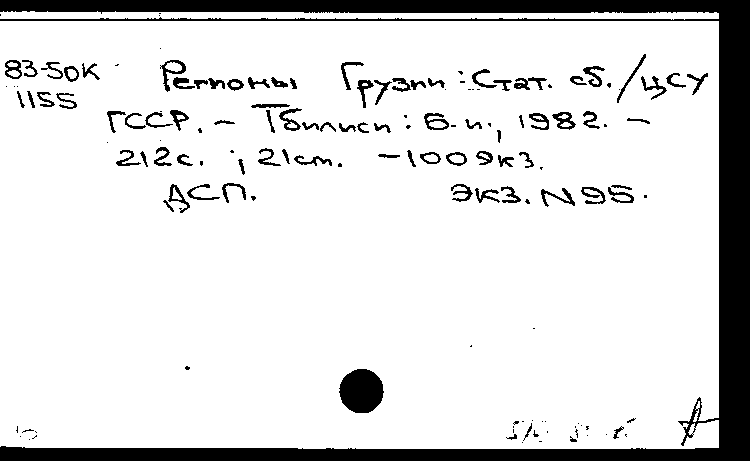 83-50К Регионы Грузии : Стат. сб. / ЦСУ
1155
ГССР. – Тбилиси : Б. и., 1982. –
212 с. ; 21 см. – 100 экз.
ДСП. Экз. N 95.